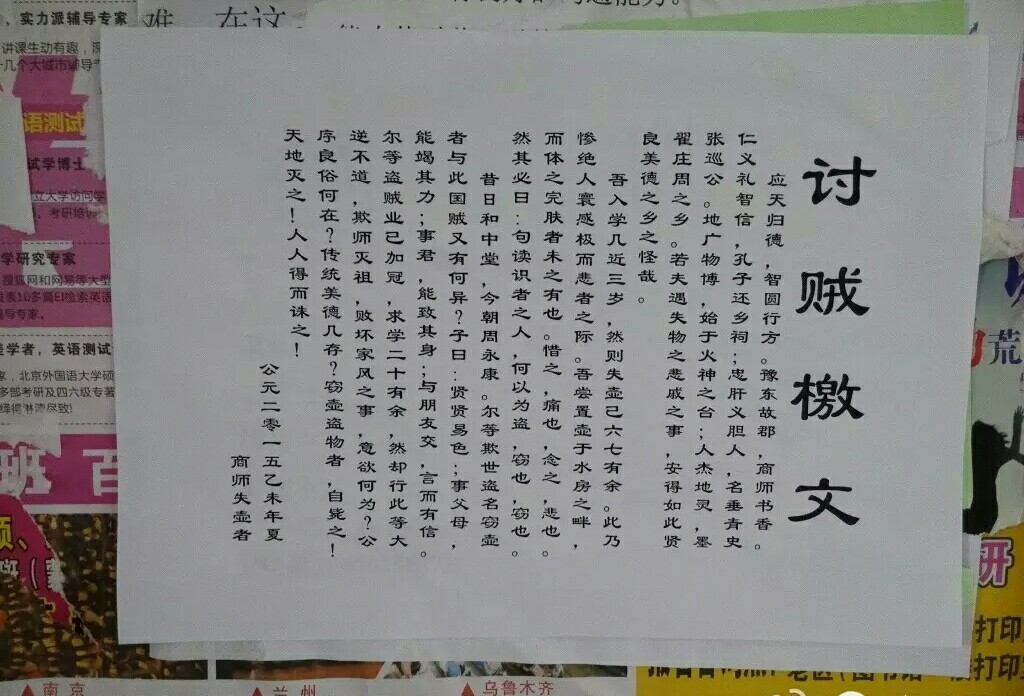 讨贼檄文
应天归德，智圆行方。豫东故郡，商师书香。
仁义礼智信，孔子还乡祠；忠肝义胆人，名垂青史
张巡公。地广物博，始于火神之台；人杰地灵，墨
翟庄周之乡。若夫遇失物之悲戚之事，安得如此贤
良美德之乡之怪哉。
吾入学几近三岁，然则失壶已六七有余。此乃
惨绝人寰感极而悲者之际。吾尝置壶于水房之畔，
而体之完肤者未之有也。惜之，痛也，念之，悲也。
然其必曰：句读识者之人，何以为盗，窃也，窃也。
昔日和中堂，今朝周永康。尔等欺世盗名窃壶
者与此国贼又有何异？子曰：贤贤易色；事父母，
能竭其力；事君，能致其身；与朋友交，言而有信。
尔等盗贼业已加冠，求学二十有余，然却行此等大
逆不道，欺师灭祖，败坏家风之事，意欲何为？公
序良俗何在？传统美德几存？窃壶盗物者，自毙之！
天地灭之！人人得而诛之！
公元二零一五乙未年夏
商师失壶者
实力派辅导专家
讲课生动有趣，
十几个大城市辅导
语测试
试学博士
立大学访问学
考研培训
学研究专家
搜狐网和网易等大型
发表10多篇EI检索英语
导专家。
学者，英语测试
家，北京外国语大学硕
多部考研及四六级专著
淋漓尽致！
班 百
难 在这
荒
研
打印
南京
兰州
乌鲁木齐